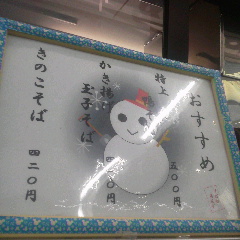 おすすめ
特上
五〇〇円
かき揚げ
玉子そば
四二〇円
きのこそば
四二〇円